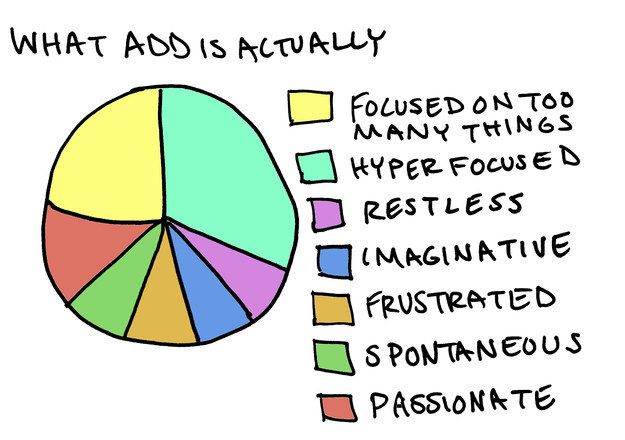 WHAT ADD IS ACTUALLY
FOCUSED ON TOO
MANY THINGS
HYPER FOCUSED
RESTLESS
IMAGINATIVE
FRUSTRATED
SPONTANEOUS
PASSIONATE